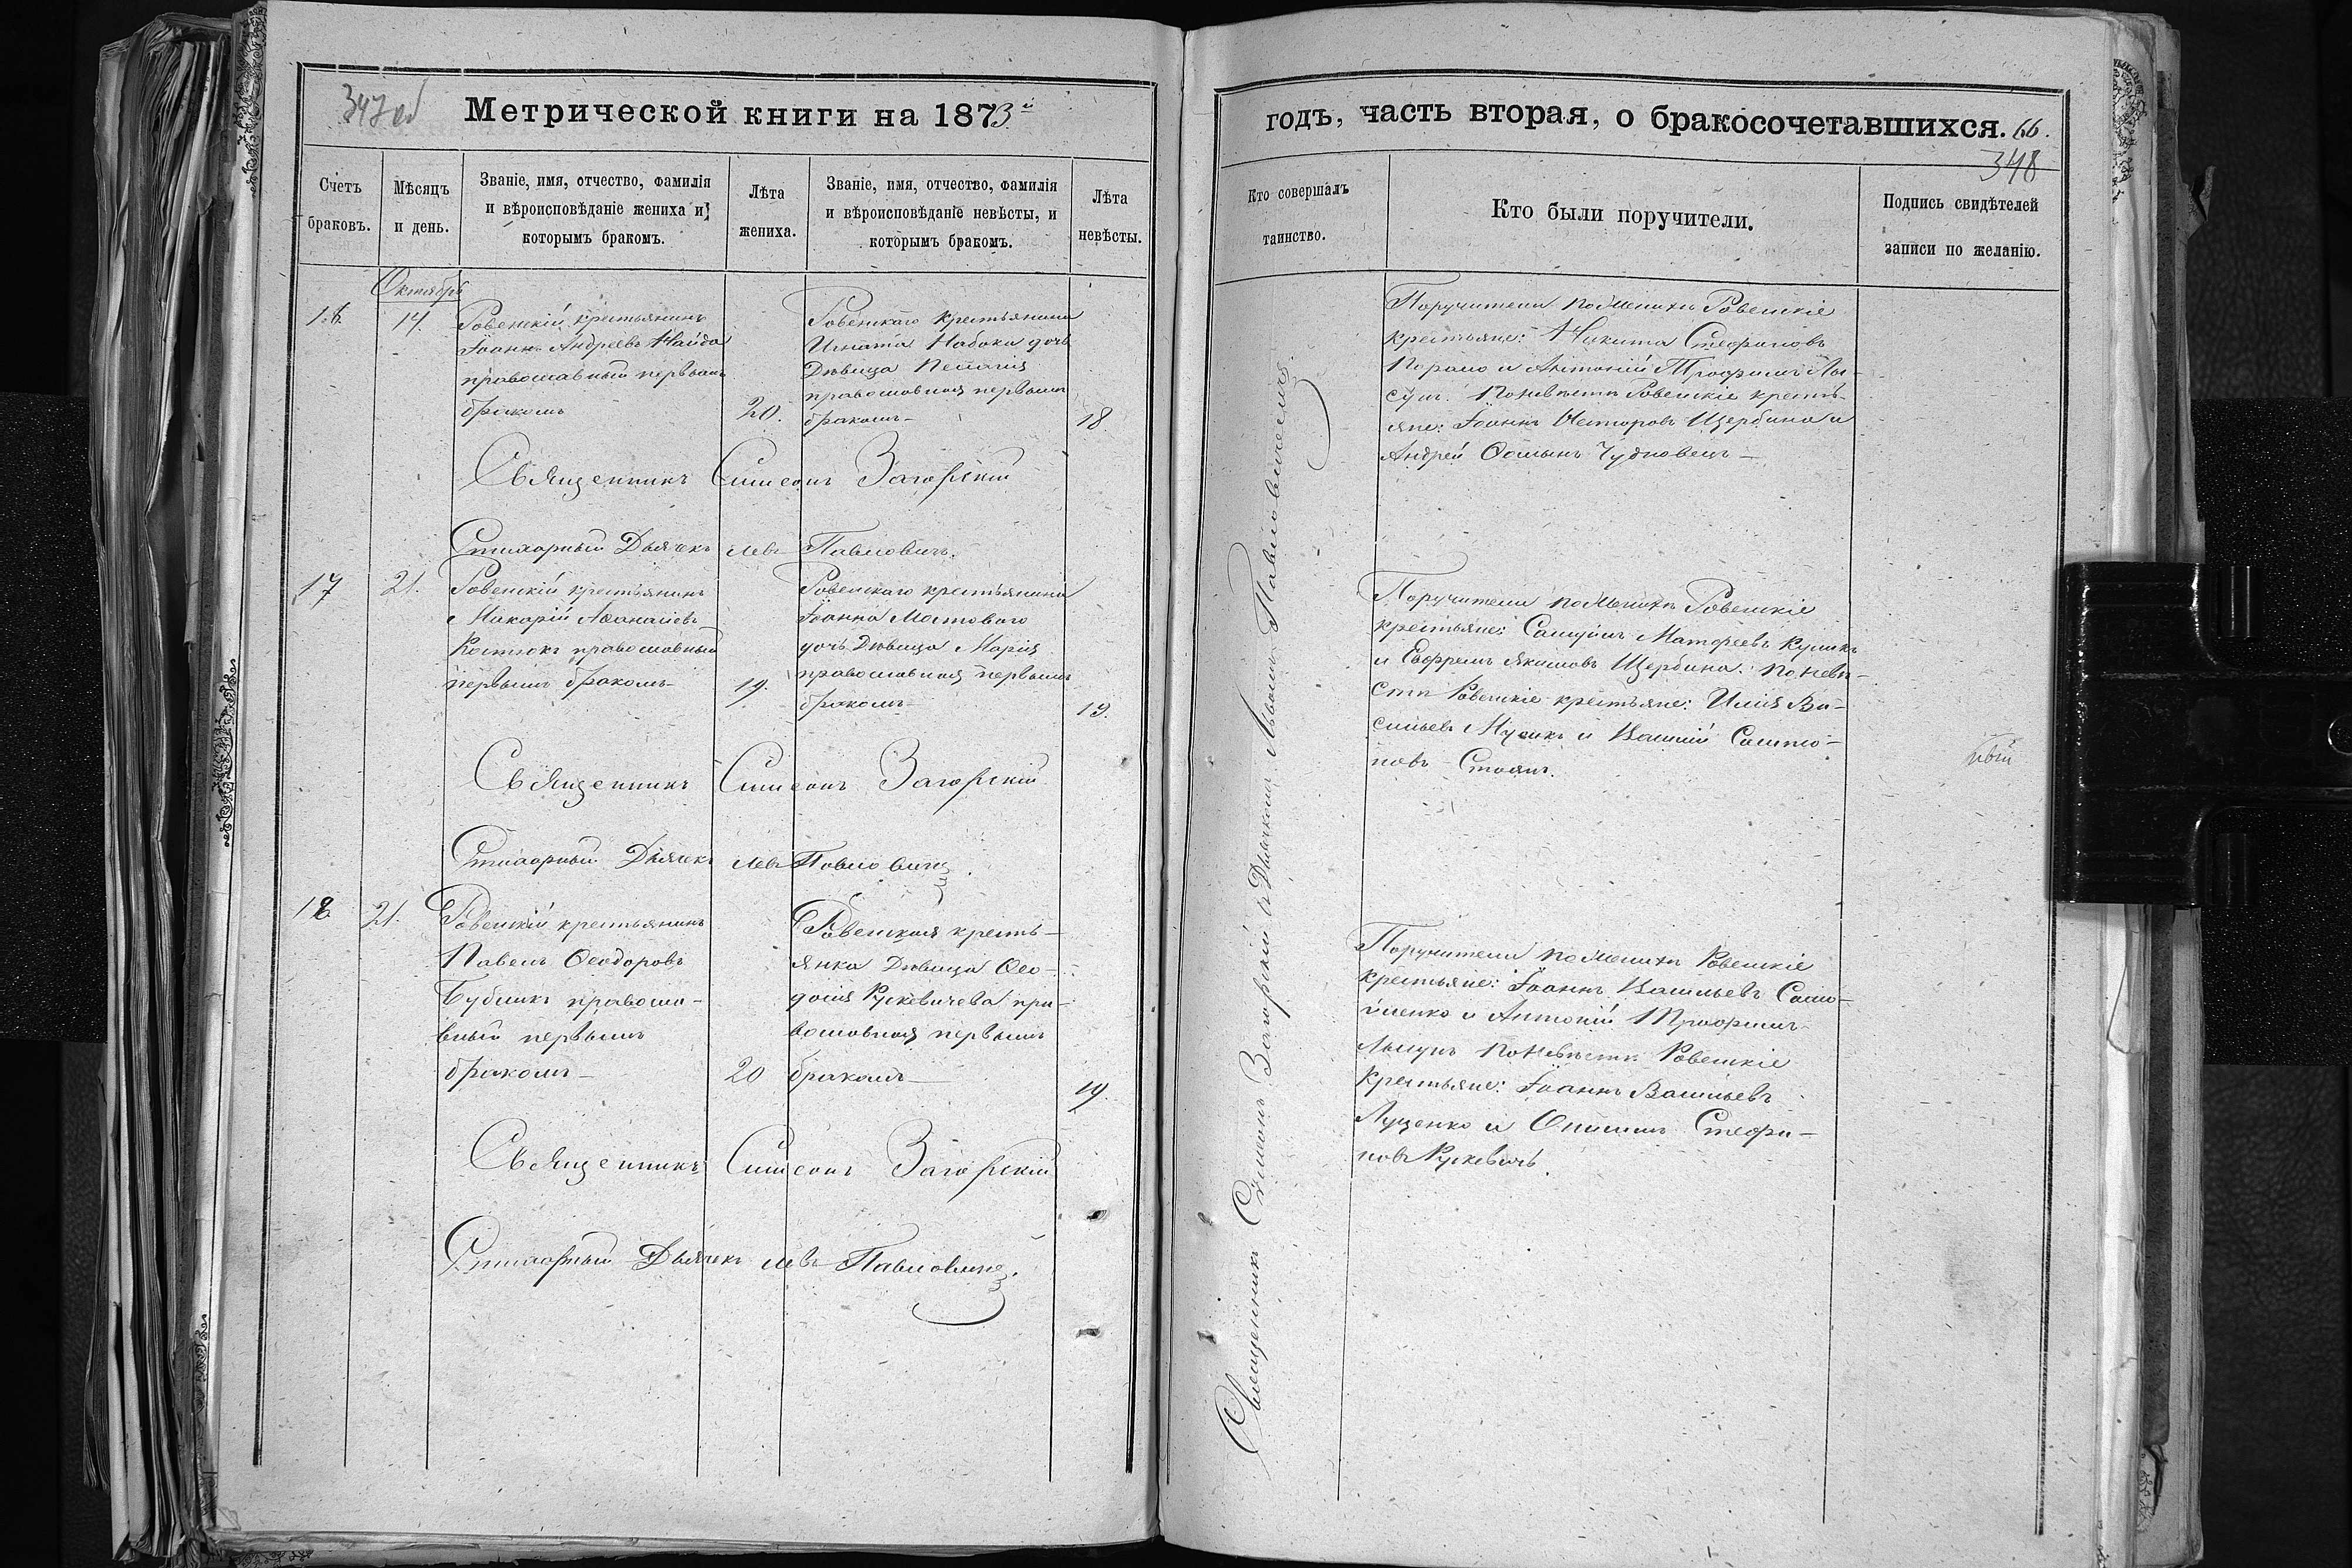 347 об
Метрической книги на 1873й
Счетъ браковъ.
Мѣсяцъ и день.
Званіе, имя, отчество, фамилія и вѣроисповѣданіе жениха и которымъ бракомъ.
Лѣта жениха.
Званіе, имя, отчество, фамилія и вѣроисповѣданіе невѣсты, и которымъ бракомъ.
Лѣта невѣсты.
Октябрь
16. 14.
Ровенскій крестьянинъ
Іоаннъ Андреевъ Найда
православный первымъ
бракомъ
20.
Ровенскаго крестьянина
Игната Набока дочь
Дѣвица Пелагія
православная первымъ
бракомъ
18.
Священникъ Симеонъ Загорскій
Стихарный Дьячекъ Левъ Павловичъ.
17 21.
Ровенскій крестьянинъ
Макарій Аѳанасіевъ
Костюкъ православный
первымъ бракомъ
19.
Ровенскаго крестьянина
Іоанна Мостового
дочь Дѣвица Марія
православная первымъ
бракомъ
19.
Священникъ Симеонъ Загорскій
Стихарный Дьячекъ Левъ Павловичъ.
18 21.
Ровенскій крестьянинъ
Павелъ Ѳеодоровъ
Бубликъ правосла-
вный первымъ
бракомъ
20
Ровенская кресть-
янка Дѣвица Ѳео-
досія Рускевичева пра-
вославная первымъ
бракомъ
19.
Священникъ Симеонъ Загорскій
Стихарный Дьячекъ Левъ Павловичъ.
годъ, часть вторая, о бракосочетавшихся. 66.
348
Кто совершалъ таинство.
Кто были поручители.
Подпись свидѣтелей записи по желанію.
Священникъ Симеонъ Загорскій съ Дьячкомъ Львомъ Павловичемъ.
Поручители по женихѣ Ровенскіе
крестьяне: Никита Стефановъ
и Антоній Трофимъ Лы-
сунъ. По невѣстѣ Ровенскіе кресть-
яне: Іоаннъ Несторовъ Щербина и
Андрей Чудновецъ
Поручители по женихѣ Ровенскіе
крестьяне: Самуилъ Матфеевъ Куликъ
и Евфремъ Якимовъ Щербина: по невѣ-
стѣ Ровенскіе крестьяне: Илія Ва-
сильевъ и Василій
новъ Стоянъ.
Поручители по женихѣ Ровенскіе
крестьяне: Іоаннъ Васильевъ Само-
йленко и Антоній Трофимъ
Лысунъ по невѣстѣ Ровенскіе
крестьяне: Іоаннъ Васильевъ
Луценко и Стефа-
новъ Рускевичъ.